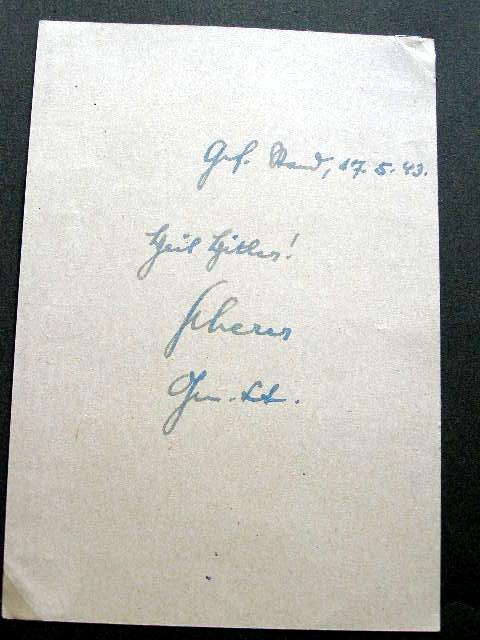 Gef. Stand, 17.5.43.
Heil Hitler!
Scherer
Gen. Lt.